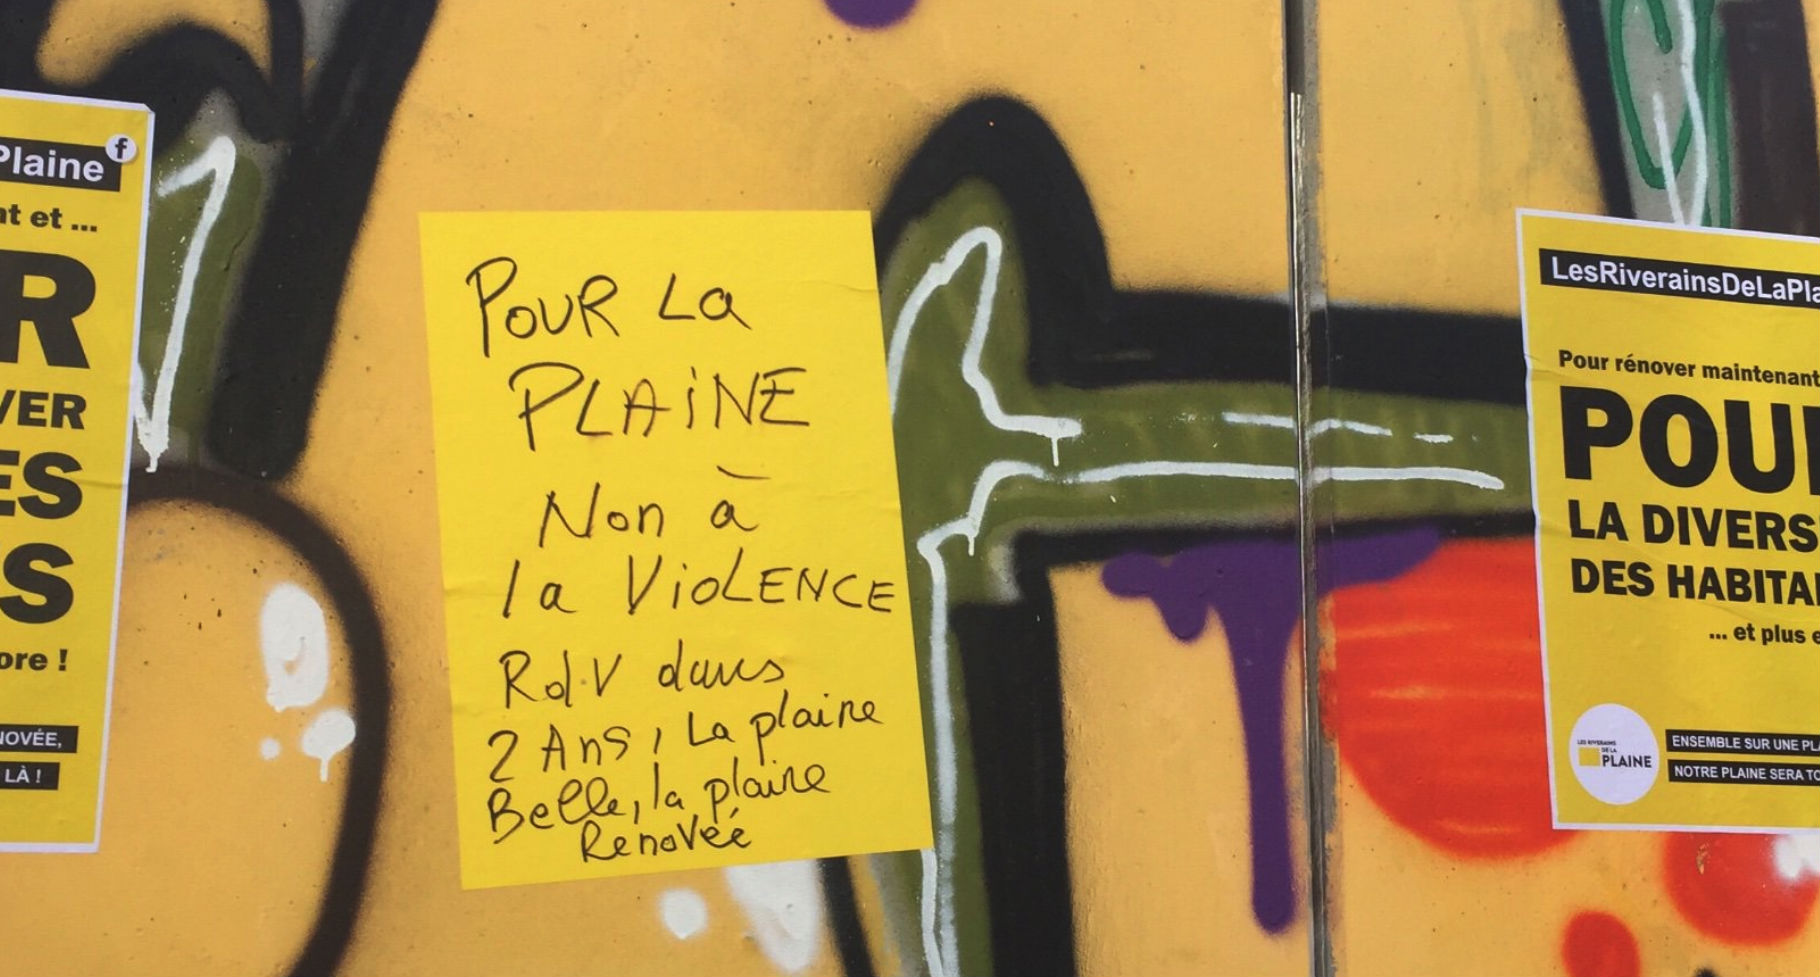 Plaine
f
nt et ...
R
VER
ES
S
ore !
NOVÉE,
LÀ !
POUR La
PLAiNE
Non à
la ViOLENCE
Rd.V dans
2 Ans, La plaine
Belle, la plaine
Renovée
LesRiverainsDeLaPla
Pour rénover maintenant
POU
LA DIVERS
DES HABITA
... et plus e
LES RIVERAINS
DE LA
PLAINE
ENSEMBLE SUR UNE PLA
NOTRE PLAINE SERA TO